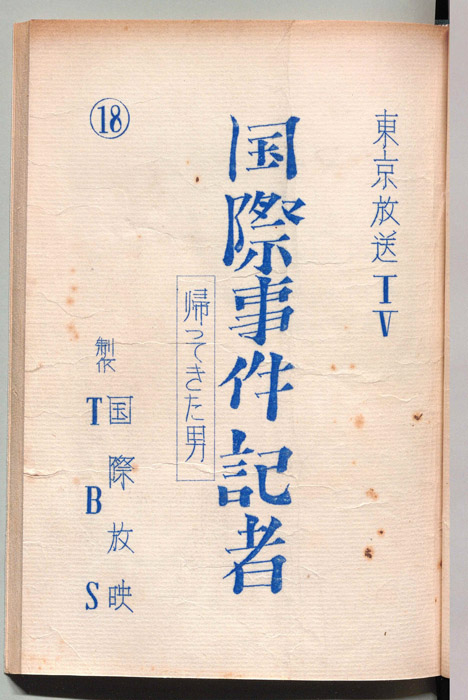 東京放送TV
国際事件記者
帰ってきた男
⑱
制作
国際放映
TBS